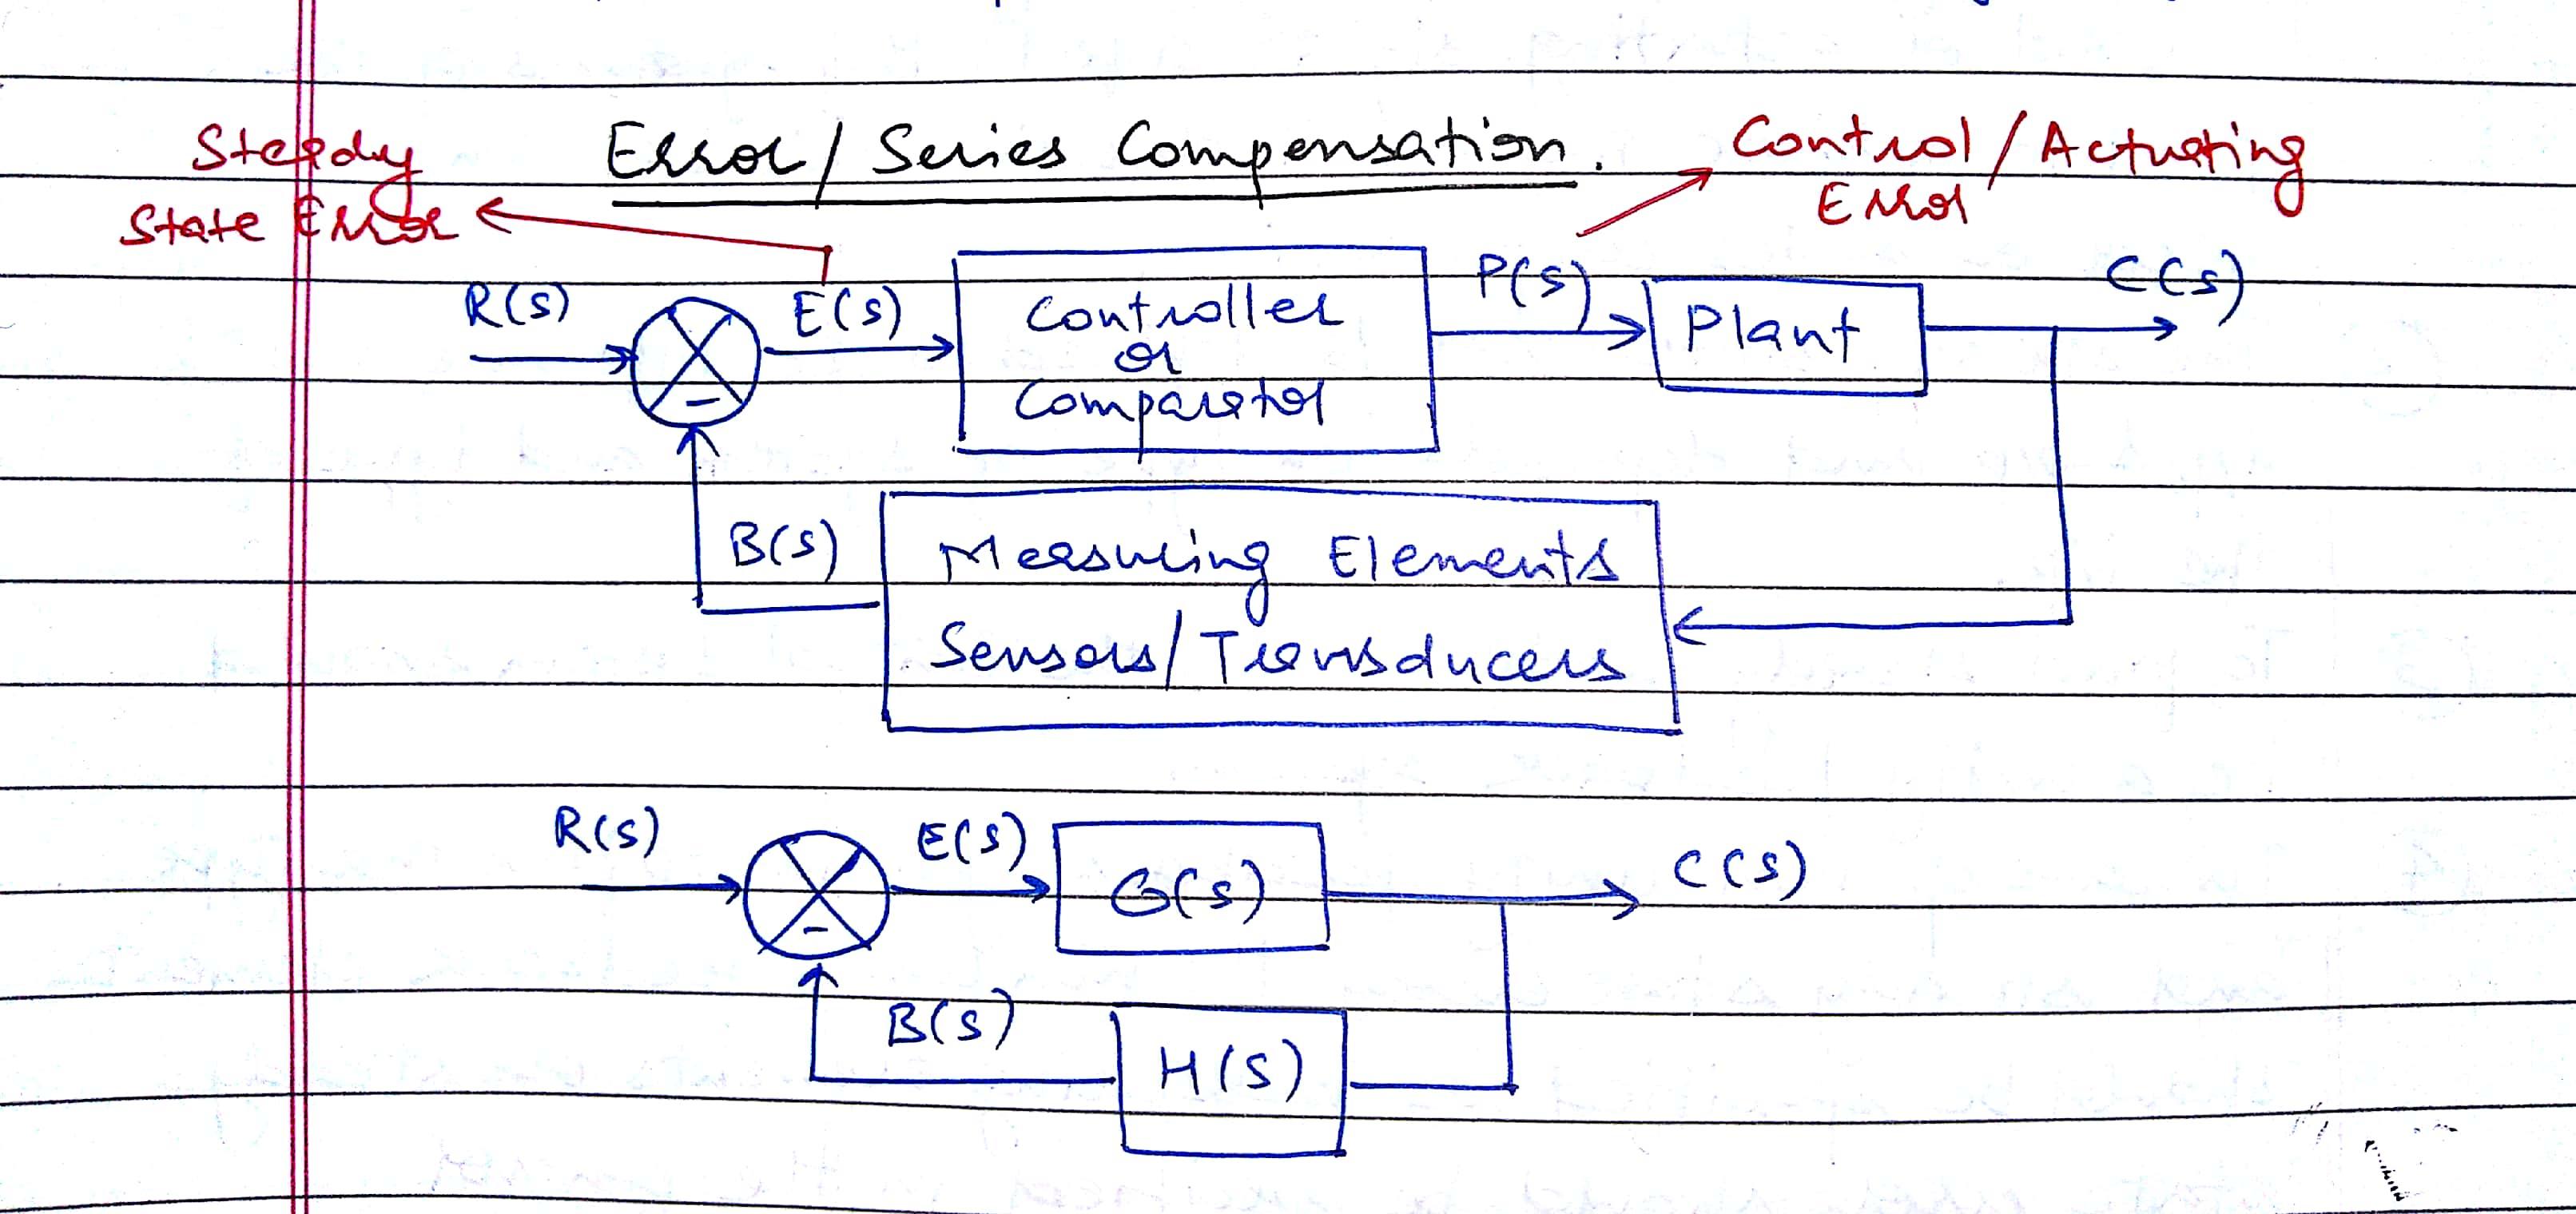 Error/Series Compensation.
Control/Actuating
Error
Steady
State Error
R(s)
E(s)
Controller
or
Comparator
P(s)
Plant
C(s)
B(s)
Measuring Elements
Sensors/Transducers
R(s)
E(s)
G(s)
C(s)
B(s)
H(s)